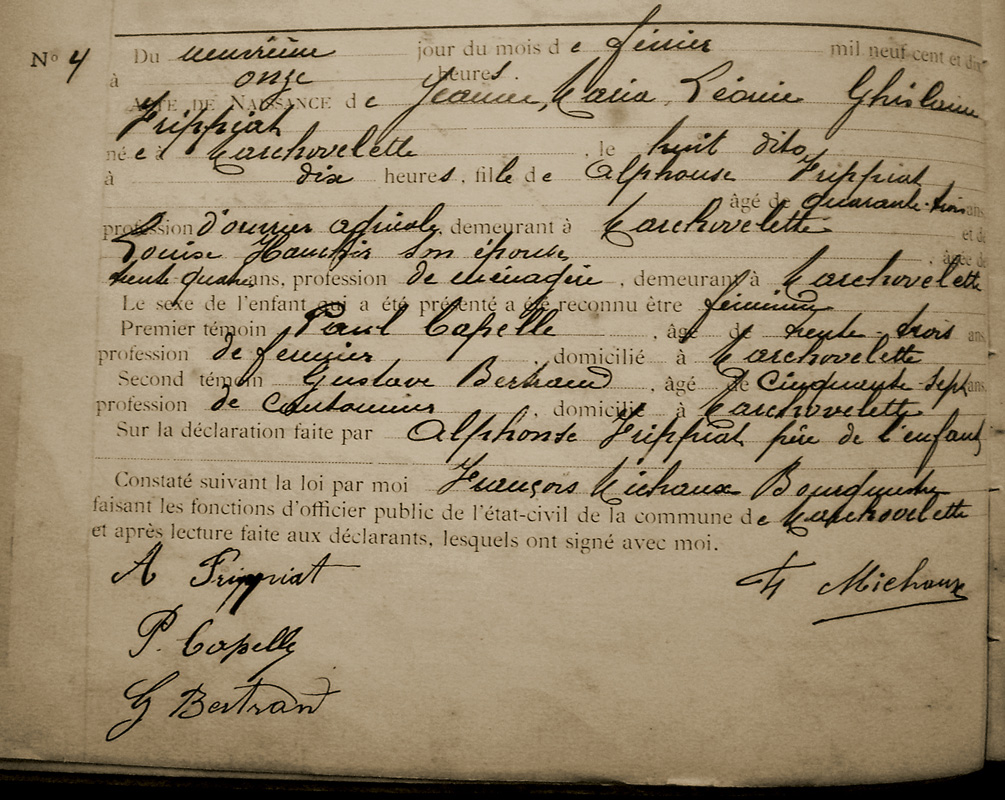 N° 4 Du neuvième jour du mois de février mil neuf cent et dix
à onze heures.
ACTE DE NAISSANCE de Jeanne, Maria, Léonie Ghislaine
Frippiat
née à Marchovelette, le huit dito,
à dix heures, fille de Alphonse Frippiat
âgé de quarante-trois ans,
profession d'ouvrier agricole, demeurant à Marchovelette et de
Louise son épouse, âgée de
trente quatre ans, profession de ménagère, demeurant à Marchovelette
Le sexe de l'enfant qui a été présenté a été reconnu être féminin
Premier témoin Paul Capelle, âgé de trente-trois ans,
profession de fermier, domicilié à Marchovelette
Second témoin Gustave Bertrand, âgé de cinquante-sept ans,
profession de cantonnier, domicilié à Marchovelette
Sur la déclaration faite par Alphonse Frippiat père de l'enfant
Constaté suivant la loi par moi François Michaux Bourgmestre
faisant les fonctions d'officier public de l'état-civil de la commune de Marchovelette
et après lecture faite aux déclarants, lesquels ont signé avec moi.
A Frippiat F Michaux
P. Capelle
G Bertrand